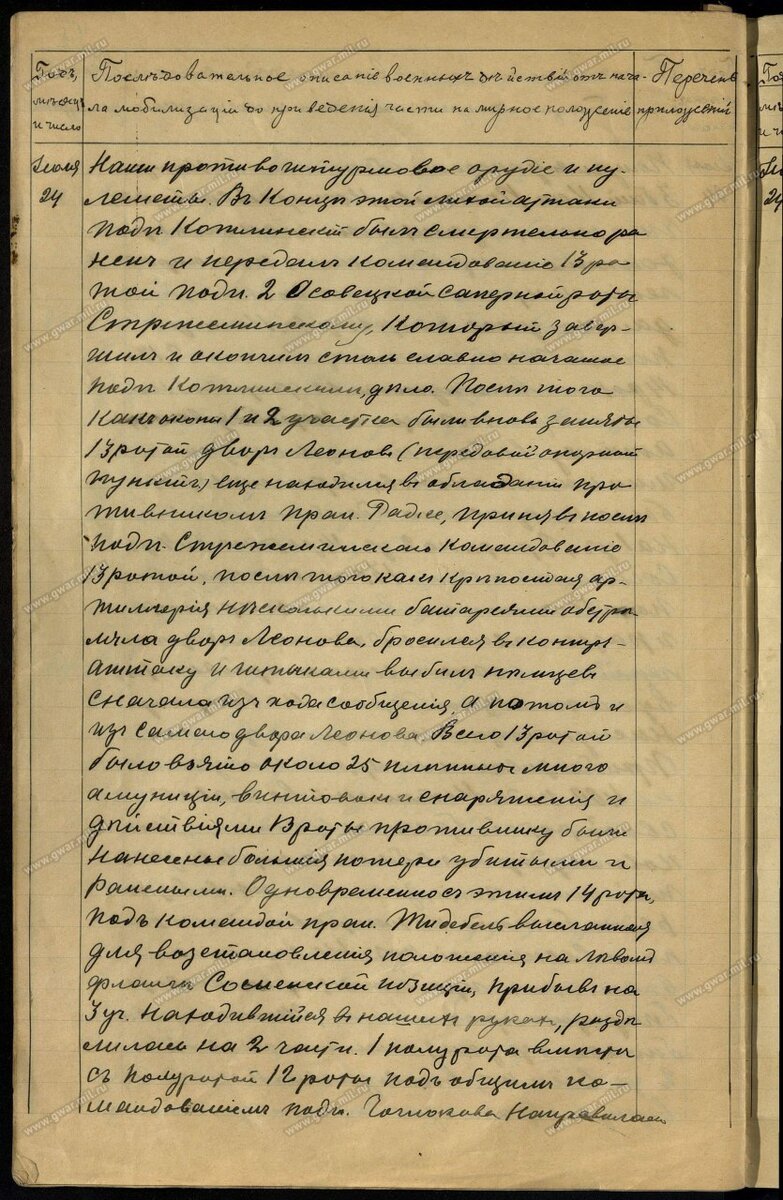 Годъ, мѣсяцъ и число
Послѣдовательное описаніе военныхъ дѣйствій отъ нача-
ла мобилизаціи до приведенія части на мирное положеніе
Перечень приложеній
Іюля
24
Наши противоштурмовое орудіе и пу-
леметы. Въ концѣ этой лихой аттаки
подп Котлинскій былъ смертельно ра
ненъ и передалъ командованіе 13 ро
той подп. 2 Осовецкой Саперной роты
Стржеминскому, который завер-
шилъ и окончилъ столь славно начатое
подп Котлинскимъ, дѣло. Послѣ того
какъ окопы 1 и 2 участка были вновь заняты
13 ротой дворъ Леонова (передовой опорный
пунктъ) еще находился въ обладаніи про
тивникомъ прап. Радке, принявъ послѣ
подп. Стржеминскаго командованіе
13 ротой, послѣ того какъ крѣпостная ар-
тиллерія нѣсколькими батареями обстрѣ
ляла дворъ Леонова, бросился въ контръ-
аттаку и штыками выбилъ нѣмцевъ
сначала изъ хода сообщенія, а потомъ и
изъ самаго двора Леонова. Всего 13 ротой
было взято около 25 плѣнныхъ много
амуниціи, винтовокъ и снаряженія и
дѣйствіями 13 роты противнику были
нанесены большія потери убитыми и
ранеными. Одновременно съ этимъ 14 рота,
подъ командой прап. Тидебель высланная
для возстановленія положенія на лѣвомъ
флангѣ Сосненской позиціи, прибывъ на
3 уч. находившійся въ нашихъ рукахъ, раздѣ
лилась на 2 части. 1 полурота вмѣстѣ
съ полуротой 12 роты подъ общимъ ко-
мандованіемъ подп. направилась
www.gwar.mil.ru